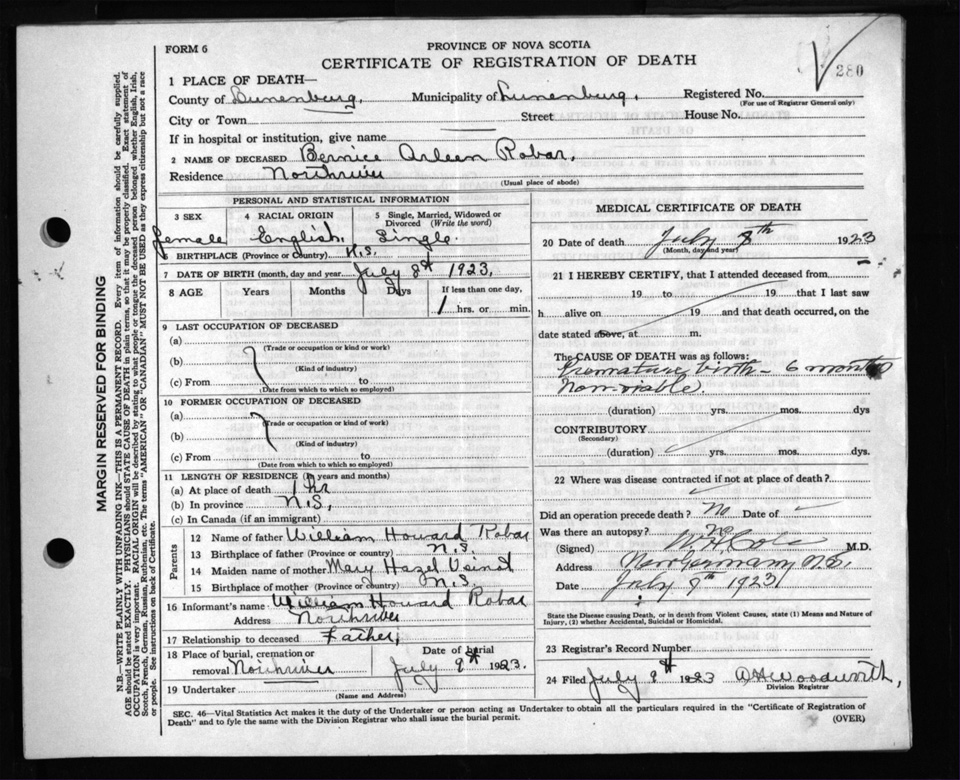 FORM 6
PROVINCE OF NOVA SCOTIA
CERTIFICATE OF REGISTRATION OF DEATH
280
1 PLACE OF DEATH—
County of Lunenburg, Municipality of Lunenburg. Registered No.
(For use of Registrar General only)
City or Town Street House No.
If in hospital or institution, give name
2 NAME OF DECEASED Bernice Arleen Robar,
Residence
(Usual place of abode)
PERSONAL AND STATISTICAL INFORMATION
3 SEX 4 RACIAL ORIGIN 5 Single, Married, Widowed or Divorced (Write the word)
female English Single.
6 BIRTHPLACE (Province or Country) N.S.
7 DATE OF BIRTH (month, day and year) July 8th 1923,
8 AGE Years Months Days If less than one day,
1 hrs. or min.
9 LAST OCCUPATION OF DECEASED
(a)
(Trade or occupation or kind or work)
(b)
(Kind of industry)
(c) From to
(Date from which to which so employed)
10 FORMER OCCUPATION OF DECEASED
(a)
(Trade or occupation or kind of work)
(b)
(Kind of industry)
(c) From to
(Date from which to which so employed)
11 LENGTH OF RESIDENCE (in years and months)
(a) At place of death 1 hr
(b) In province N.S,
(c) In Canada (if an immigrant)
Parents
12 Name of father William Howard Robar
13 Birthplace of father (Province or country) N.S.
14 Maiden name of mother Mary Hazel
15 Birthplace of mother (Province or Country) N.S.
16 Informant's name William Howard Robar
Address
17 Relationship to deceased Father,
18 Place of burial, cremation or removal
Date of burial
July 9th 1923.
19 Undertaker
(Name and Address)
MEDICAL CERTIFICATE OF DEATH
20 Date of death July 8th 1923
(Month, day and year)
21 I HEREBY CERTIFY, that I attended deceased from
19 to 19 that I last saw
h alive on 19 and that death occurred, on
date stated above, at m.
The CAUSE OF DEATH was as follows:
Premature birth - 6 months
Non-viable.
(duration) yrs. mos. dys
CONTRIBUTORY
(Secondary)
(duration) yrs. mos. dys.
22 Where was disease contracted if not at place of death?
Did an operation precede death? No Date of
Was there an autopsy? no
(Signed) W.H. Cole M.D.
Address New Germany N.S.
Date July 9th 1923
State the Disease causing Death, or in death from Violent Causes, state (1) Means and Nature of
Injury, (2) whether Accidental, Suicidal or Homicidal.
23 Registrar's Record Number
24 Filed July 9th 1923 Woodworth,
Division Registrar
SEC. 46—Vital Statistics Act makes it the duty of the Undertaker or person acting as Undertaker to obtain all the particulars required in the "Certificate of Registration of
Death" and to fyle the same with the Division Registrar who shall issue the burial permit.
(OVER)
MARGIN RESERVED FOR BINDING
N.B.—WRITE PLAINLY WITH UNFADING INK—THIS IS A PERMANENT RECORD. Every item of information should be carefully supplied.
AGE should be stated EXACTLY. PHYSICIANS should STATE CAUSE OF DEATH in plain terms, so that it may be properly classified. Exact statement of
OCCUPATION is very important. RACIAL ORIGIN will be described by stating to what people or tongue the deceased person belonged whether English, Irish,
Scotch, French, German, Russian, Ruthenian, etc. The terms "AMERICAN" OR "CANADIAN" MUST NOT BE USED as they express citizenship but not a race
or people. See instructions on back of Certificate.